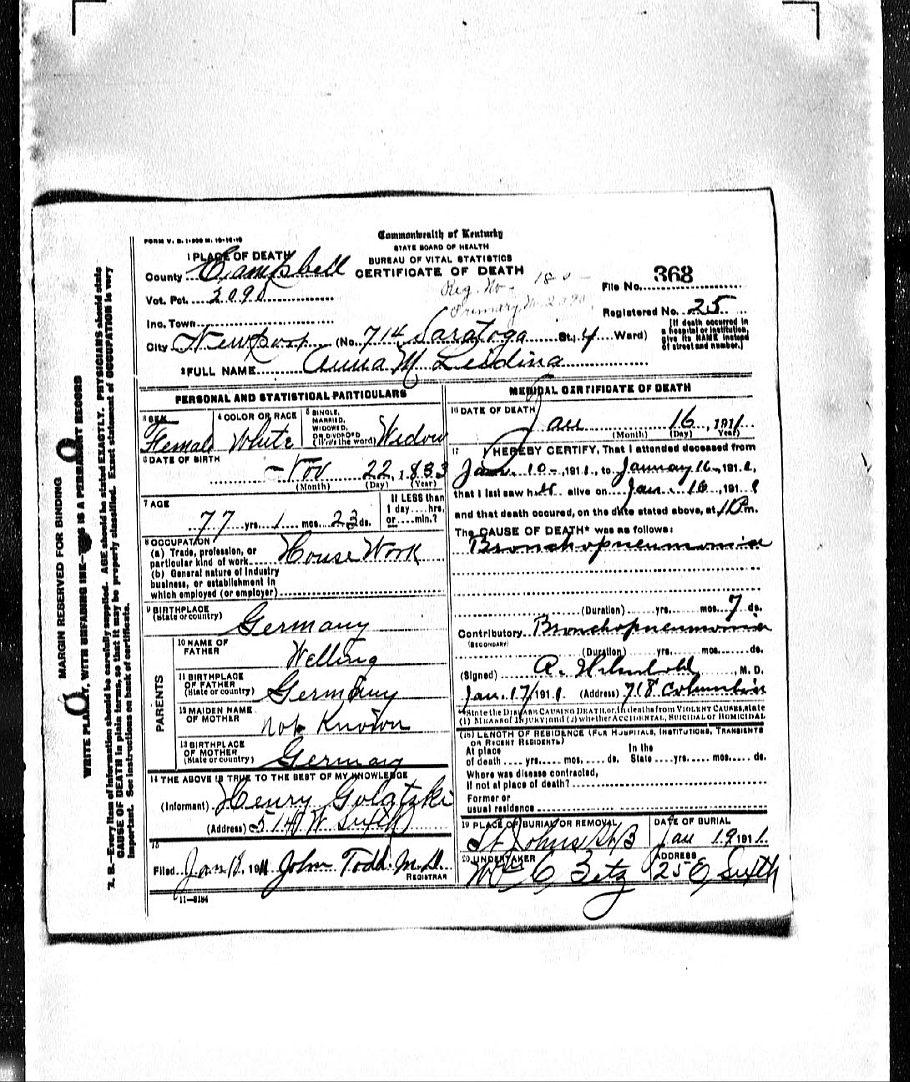 Commonwealth of Kentucky
STATE BOARD OF HEALTH
BUREAU OF VITAL STATISTICS
CERTIFICATE OF DEATH
1 PLACE OF DEATH
County Campbell
Vot. Pct. 2090
Reg. No. 180
Primary No 2090
File No. 368
Registered No. 25
Inc. Town
City Newport (No. 714 Saratoga St; 4 Ward)
[If death occurred in a hospital or institution, give its NAME instead of street and number.]
2 FULL NAME Anna M
PERSONAL AND STATISTICAL PARTICULARS
3 SEX Female
4 COLOR OR RACE White
5 SINGLE, MARRIED, WIDOWED, OR DIVORCED (Write the word) Widow
6 DATE OF BIRTH Nov 22, 1833
(Month) (Day) (Year)
7 AGE 77 yrs. 1 mos. 23 ds.
If LESS than 1 day....hrs. or....min.?
8 OCCUPATION
(a) Trade, profession, or particular kind of work House Work
(b) General nature of industry business, or establishment in which employed (or employer)
9 BIRTHPLACE (State or country) Germany
PARENTS
10 NAME OF FATHER Welling
11 BIRTHPLACE OF FATHER (State or country) Germany
12 MAIDEN NAME OF MOTHER not Known
13 BIRTHPLACE OF MOTHER (State or country) Germany
14 THE ABOVE IS TRUE TO THE BEST OF MY KNOWLEDGE
(Informant) Henry
(Address) 514 W Sixth
15
Filed Jan 18, 1911 John Todd M.D.
REGISTRAR
11—8184
MEDICAL CERTIFICATE OF DEATH
16 DATE OF DEATH Jan 16, 1911
(Month) (Day) Year
17 I HEREBY CERTIFY, That I attended deceased from
Jan 10, 1911, to January 16, 1911,
that I last saw her alive on Jan 16, 1911
and that death occured, on the date stated above, at m.
The CAUSE OF DEATH* was as follows:
Bronchopneumonia
(Duration) yrs. mos. 7 ds.
Contributory Bronchopneumonia
(SECONDARY)
(Duration) yrs. mos. ds.
(Signed) M. D.
Jan. 17, 1911 (Address) 718 Columbia
*State the DISEASE CAUSING DEATH, or, in deaths from VIOLENT CAUSES, state
(1) MEANS OF INJURY; and (2) whether ACCIDENTAL, SUICIDAL or HOMICIDAL
18 LENGTH OF RESIDENCE (FOR HOSPITALS, INSTITUTIONS, TRANSIENTS OR RECENT RESIDENTS)
At place of death yrs. mos. ds. In the State yrs. mos. ds.
Where was disease contracted, if not at place of death?
Former or usual residence
19 PLACE OF BURIAL OR REMOVAL St Johns
DATE OF BURIAL Jan 19, 1911
20 UNDERTAKER Wm C Betz
ADDRESS 25 E Sixth
MARGIN RESERVED FOR BINDING
WRITE PLAINLY, WITH UNFADING INK— IS A PERMANENT RECORD
N. B.—Every item of information should be carefully supplied. AGE should be stated EXACTLY. PHYSICIANS should state
CAUSE OF DEATH in plain terms, so that it may be properly classified. Exact statement of OCCUPATION is very
important. See instructions on back of certificate.